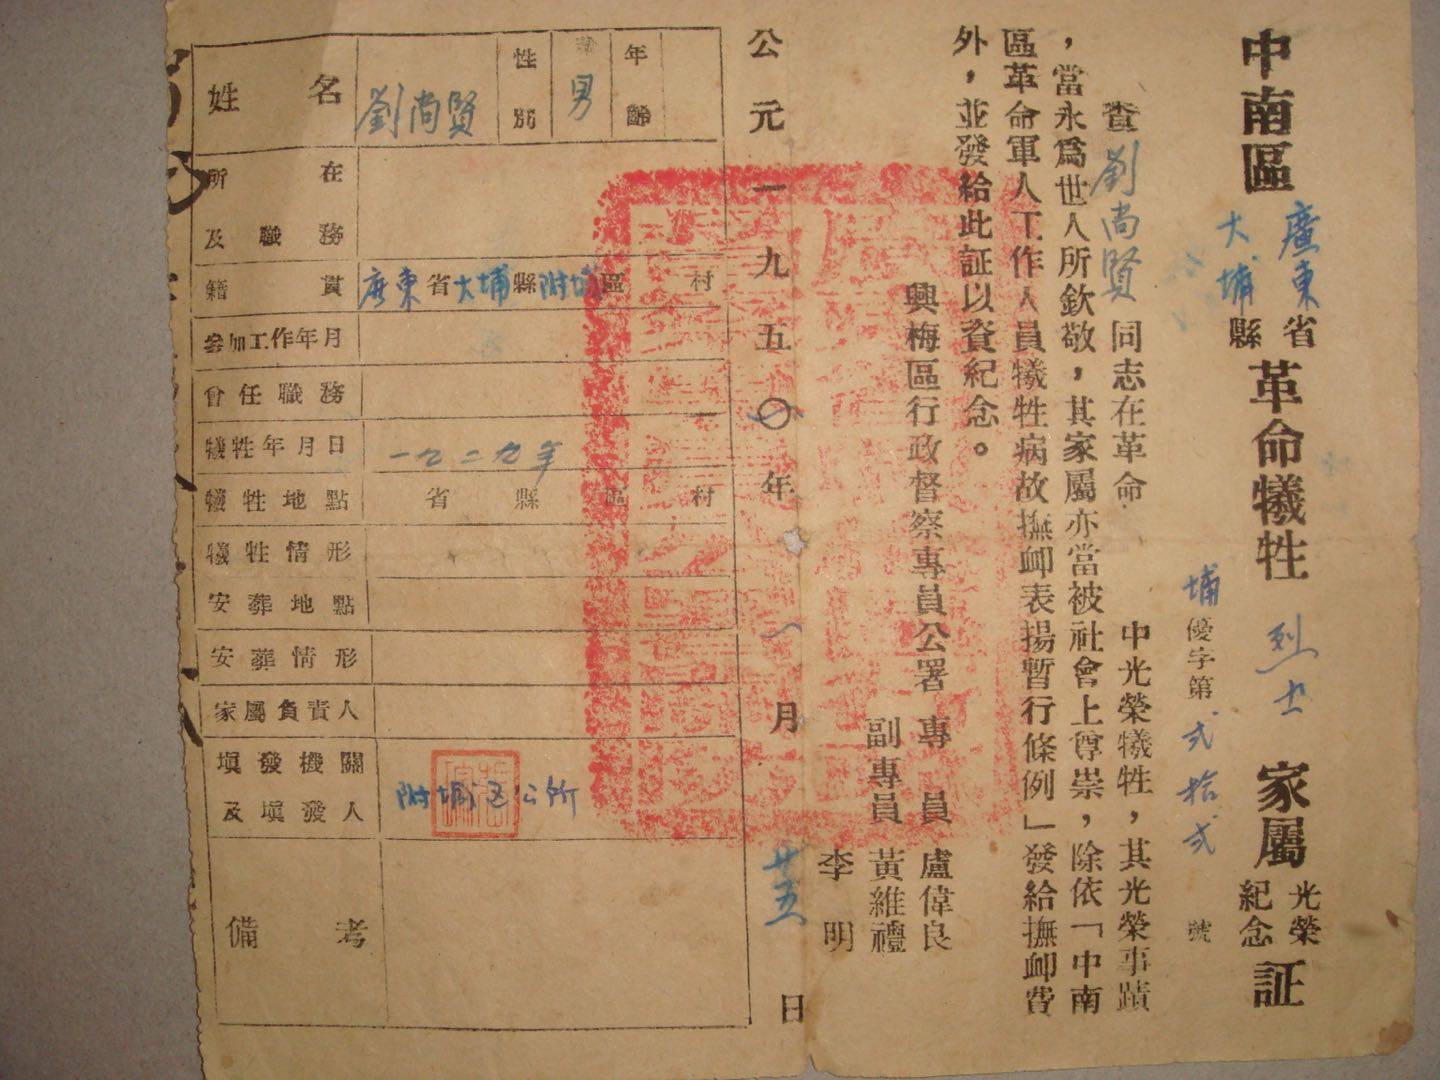 中南區 廣東省 大埔縣 革命犧牲 烈士 家屬 光榮紀念 証
埔優字第 弍拾弍 號
查劉尚賢同志在革命 中光榮犧牲，其光榮事蹟
，當永爲世人所欽敬，其家屬亦當被社會上尊崇，除依「中南
區革命軍人工作人員犧牲病故撫卹表揚暫行條例」發給撫卹費
外，並發給此証以資紀念。
興梅區行政督察專員公署 專員 盧偉良
副專員 黃維禮
李明
公元一九五〇年 一 月 廿五 日
姓名 劉尚賢 性別 男 年齡
所在及職務
籍貫 廣東省大埔縣附城區 村
參加工作年月
會任職務
犧牲年月日 一九二九年
犧牲地點 省 縣 區 村
犧牲情形
安葬地點
安葬情形
家屬負責人
填發機關及填發人 附城區公所
備考